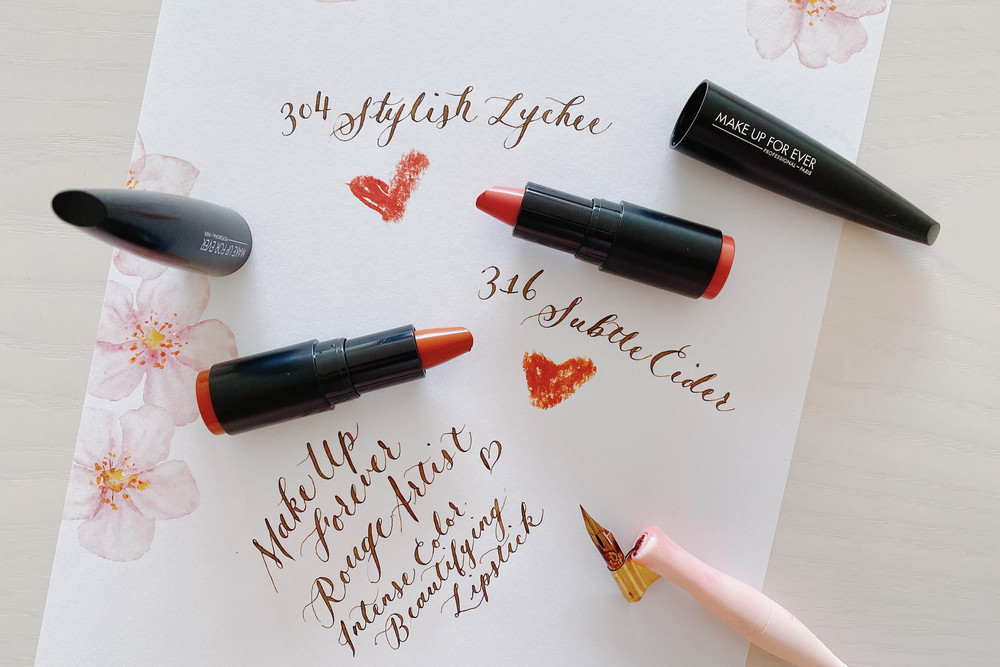 304 Stylish Lychee
MAKE UP FOR EVER
PROFESSIONAL – PARIS
MAKE UP FOR EVER
PROFESSIONAL – PARIS
316 Subtle Cider
Make Up
Forever
Rouge Artist
Intense Color
Beautifying
Lipstick